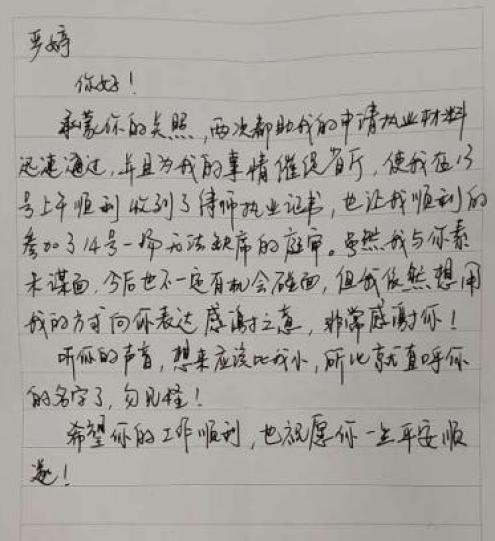 严婷
你好！
承蒙你的关照，两次都助我的申请执业材料
迅速通过，并且为我的事情催促省厅，使我在13
号上午顺利收到了律师执业证书，也让我顺利的
参加了14号一场无法缺席的庭审。虽然我与你素
未谋面，今后也不一定有机会碰面，但我依然想用
我的方式向你表达感谢之意，非常感谢你！
听你的声音，想来应该比我小，所以就直呼你
的名字了，勿见怪！
希望你的工作顺利，也祝愿你一生平安顺
遂！